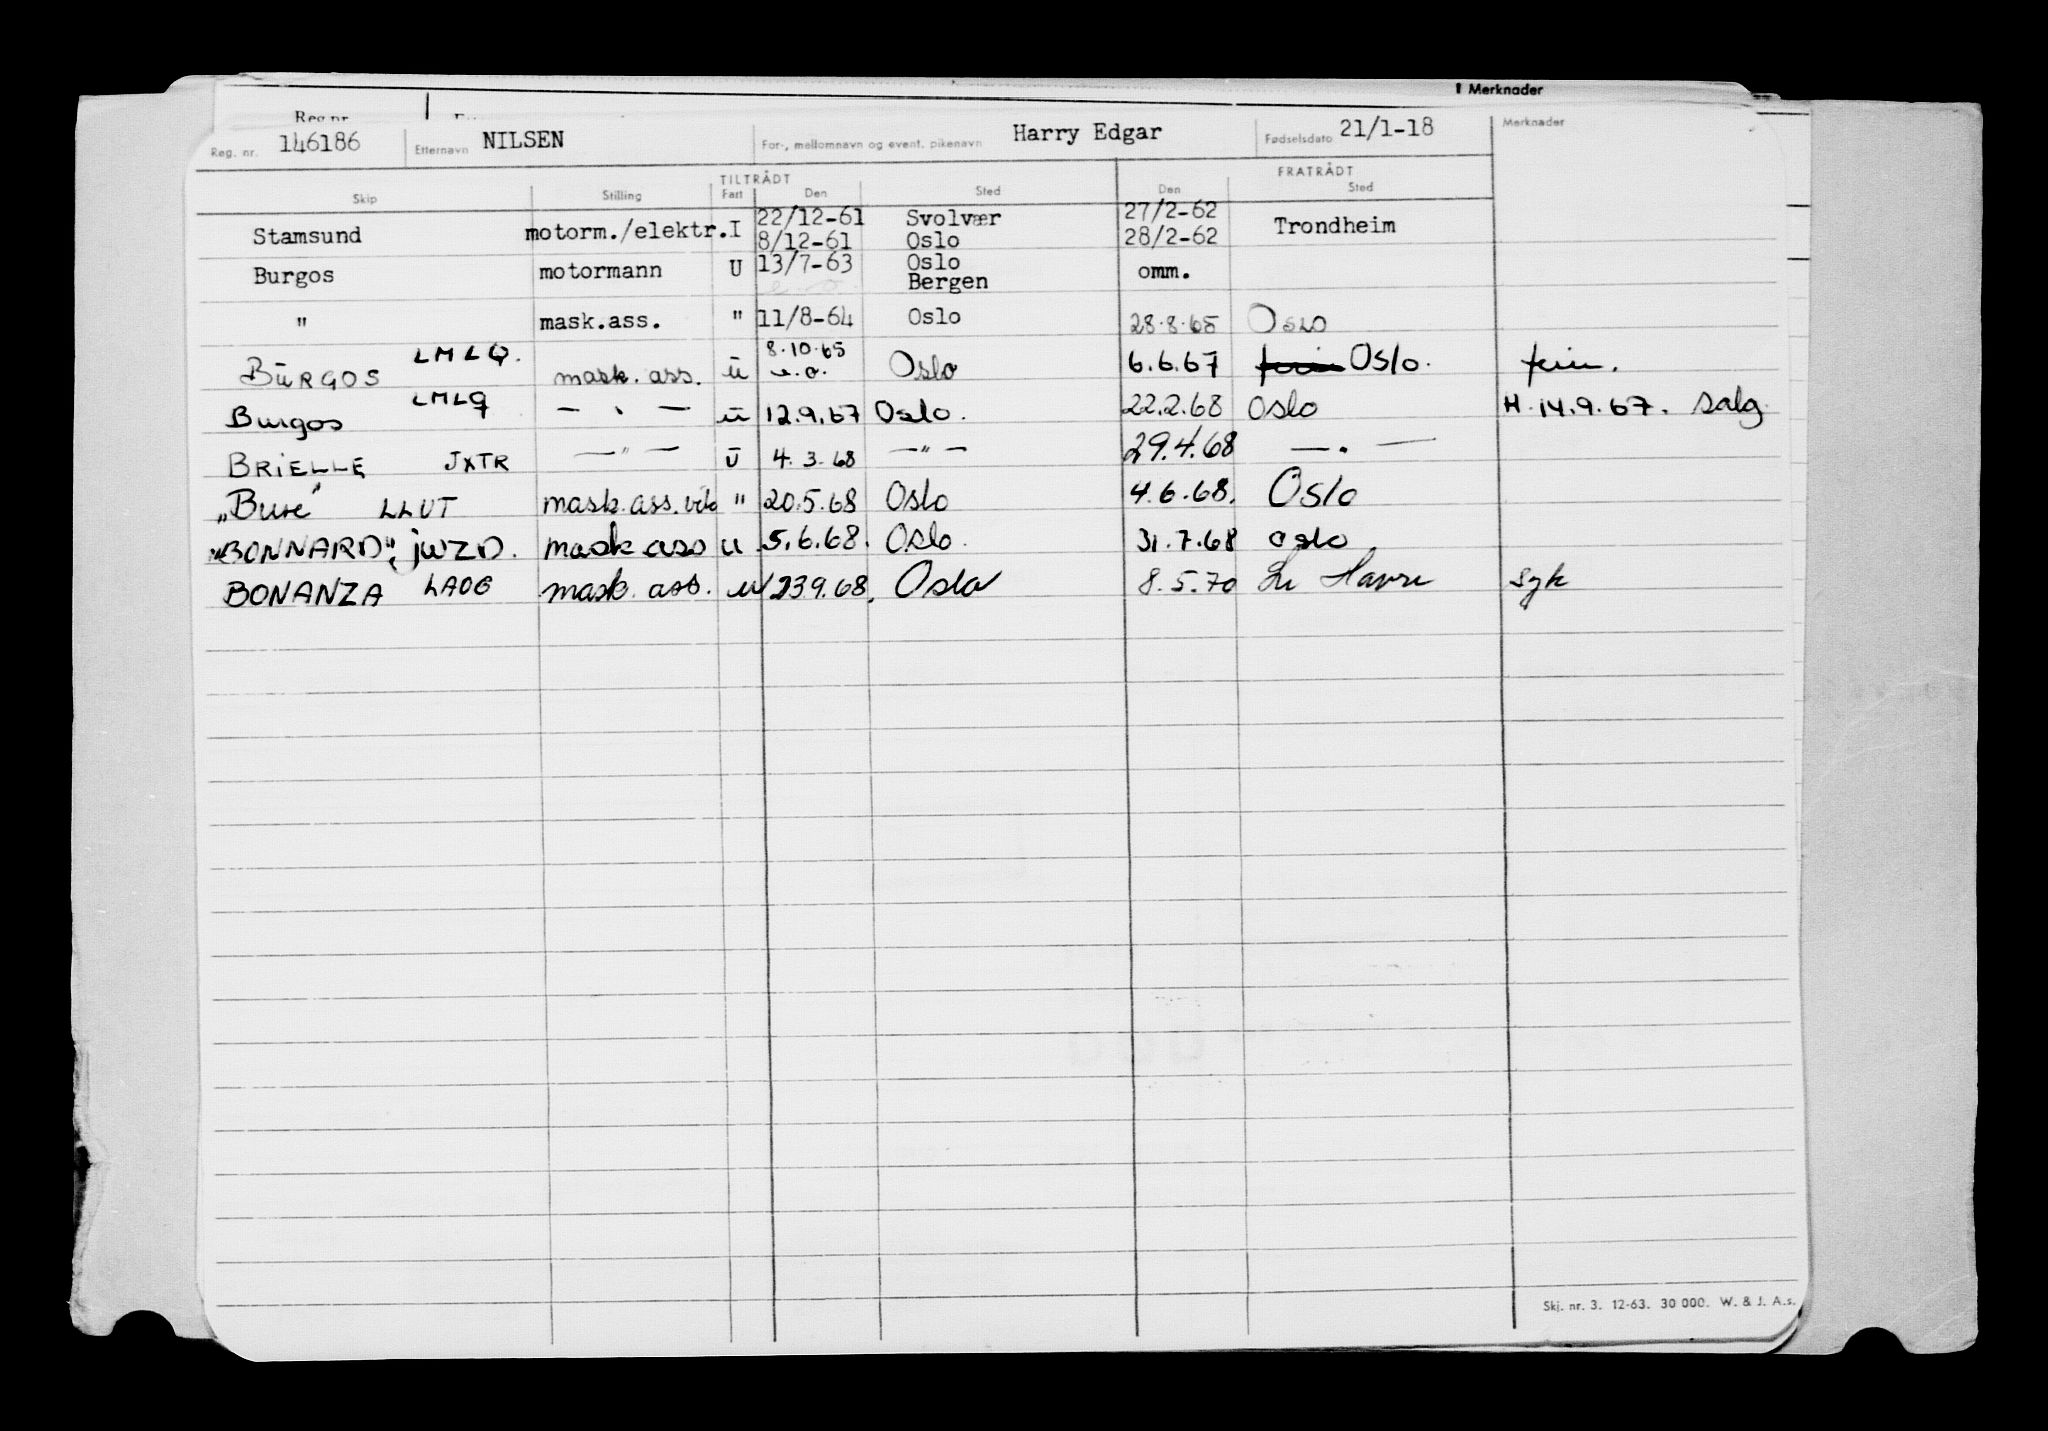 Merknader
Reg. nr.
Reg. nr. 146186 Etternavn NILSEN For-, mellomnavn og event. pikenavn Harry Edgar Fødselsdato 21/1-18 Merknader
TILTRÅDT FRATRÅDT
Skip Stilling Fart Den Sted Den Sted
22/12-61 Svolvær 27/2-62
Stamsund motorm./elektr. I 8/12-61 Oslo 28/2-62 Trondheim
Burgos motormann U 13/7-63 Oslo omm.
Bergen
" mask.ass. " 11/8-64 Oslo 28.8.65 Oslo
LMLQ. 8.10.65
BURGOS mask. ass. u Oslo 6.6.67 Oslo. ferie.
Burgos LMLQ — " — u 12.9.67 Oslo. 22.2.68 Oslo H. 14.9.67. Salg.
BRIELLE JXTR — " — u 4.3.68 — " — 29.4.68 — " —
"Bure" LLUT mask.ass. " 20.5.68 Oslo 4.6.68. Oslo
"BONNARD", JWZD. mask ass u 5.6.68. Oslo. 31.7.68 oslo
BONANZA mask. ass. u 23.9.68. Oslo 8.5.70 Le Havre syk
Skj. nr. 3. 12-63. 30 000. W. & J. A.s.